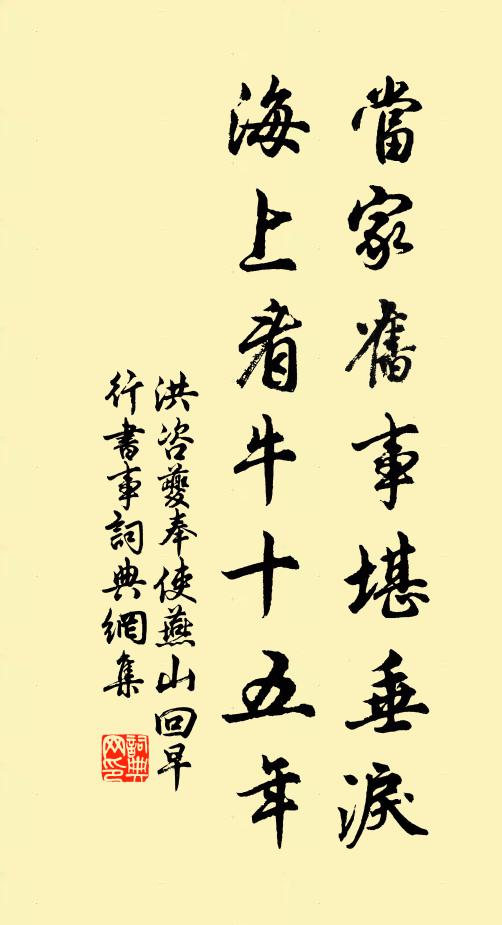 當家舊事堪垂淚
海上看牛十五年
洪咨夔奉使燕山回早
行書事詞典網集
詞典网印